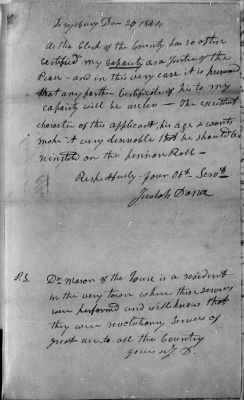 Dec 20 1834
As the Clerk of the County has so often
certified my Capacity as a Justice of the
Peace - and in this very case it is presumed
that any further Certificate of his to my
capacity will be useless - The excellent
character of this applicant, his age & wants
make it very desirable that he should be
on the pension Roll -
Respectfully your Obt Servt
Judah Dana
P.S. Dr Mason of the House is a resident
in the very town where these services
were performed and well knows that
they were revolutionary services of
great use to all the Country
yours J D.